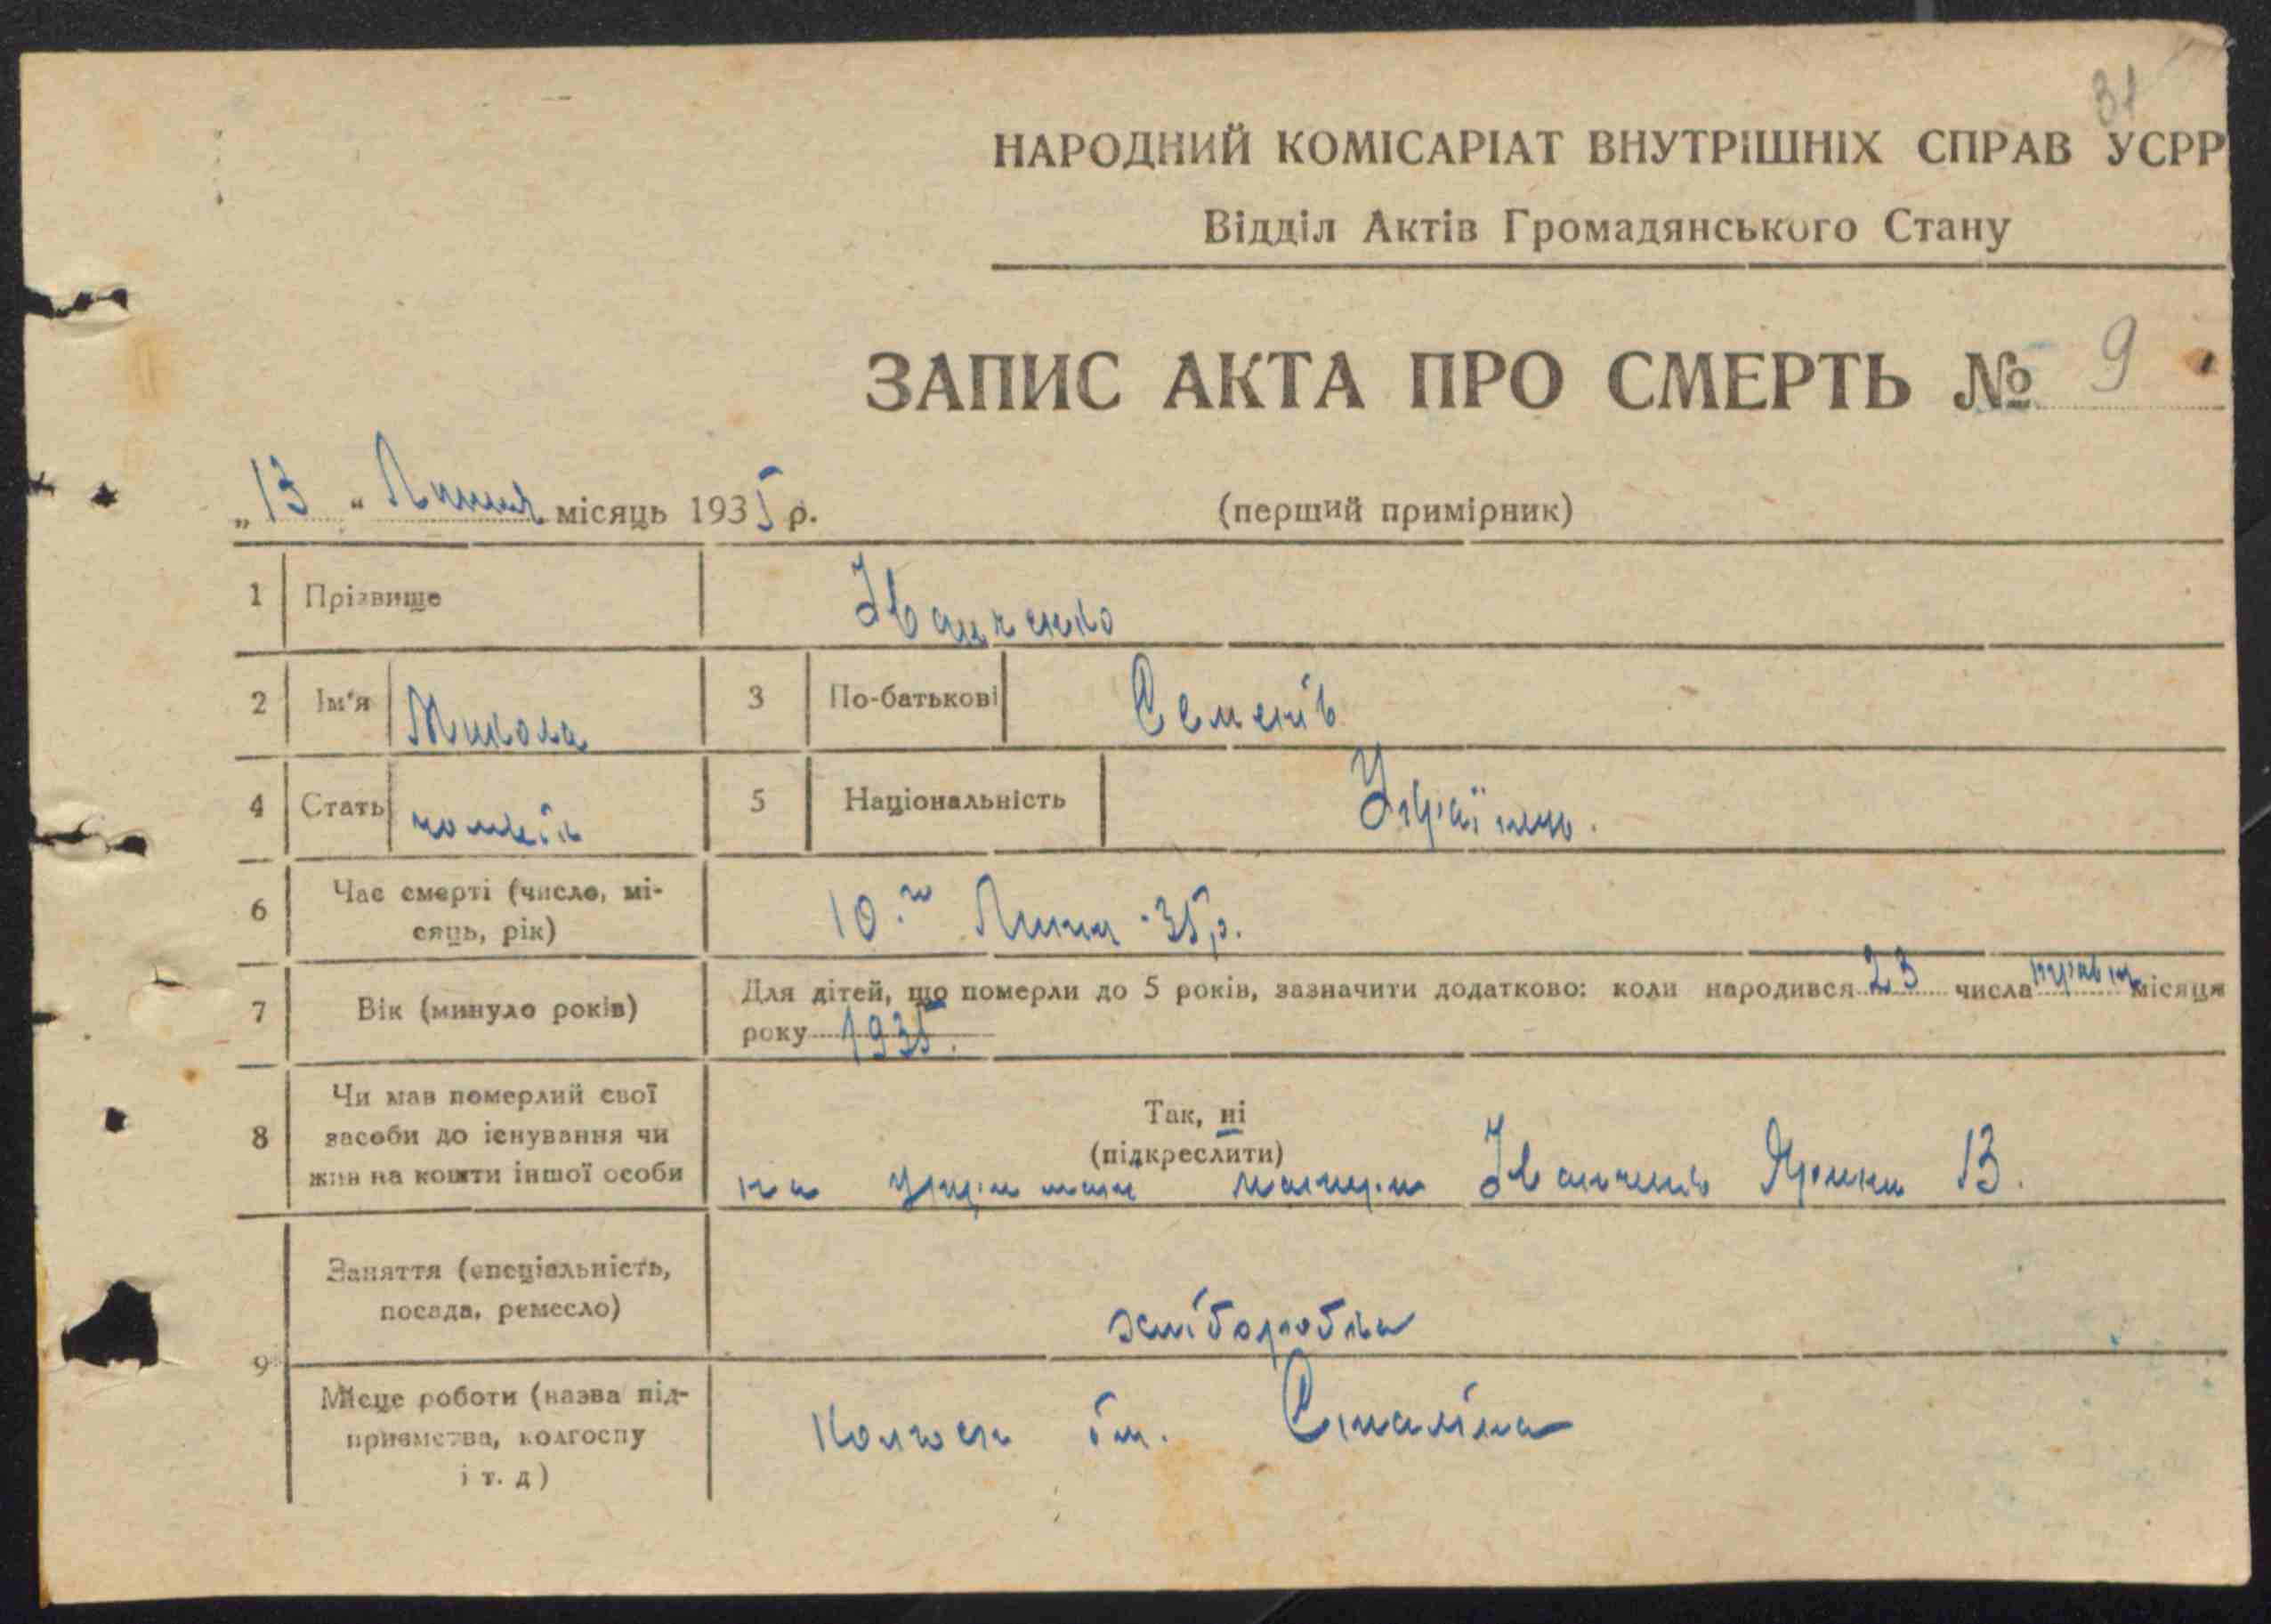 31
НАРОДНИЙ КОМІСАРІАТ ВНУТРІШНІХ СПРАВ УСРР
Відділ Актів Громадянського Стану
ЗАПИС АКТА ПРО СМЕРТЬ № 9
„13“ Липня місяць 1935 р. (перший примірник)
1 Прізвище Іванченко
2 Ім'я Микола 3 По-батькові Семенів
4 Стать чоловік 5 Національність Українець.
6 Час смерті (число, мі-
сяць, рік) 10.го Липня 35 р.
7 Вік (минуло років) Для дітей, що померли до 5 років, зазначити додатково: коли народився 23 числа травня місяця
року 1935.
8 Чи мав померлий свої
засоби до існування чи
жив на кошти іншої особи
Так, ні
(підкреслити)
на матери Іванченко В.
9 Заняття (спеціальність,
посада, ремесло) хліборобка
Місце роботи (назва під-
приємства, колгоспу
і т. д) Колгосп ім. Сталіна